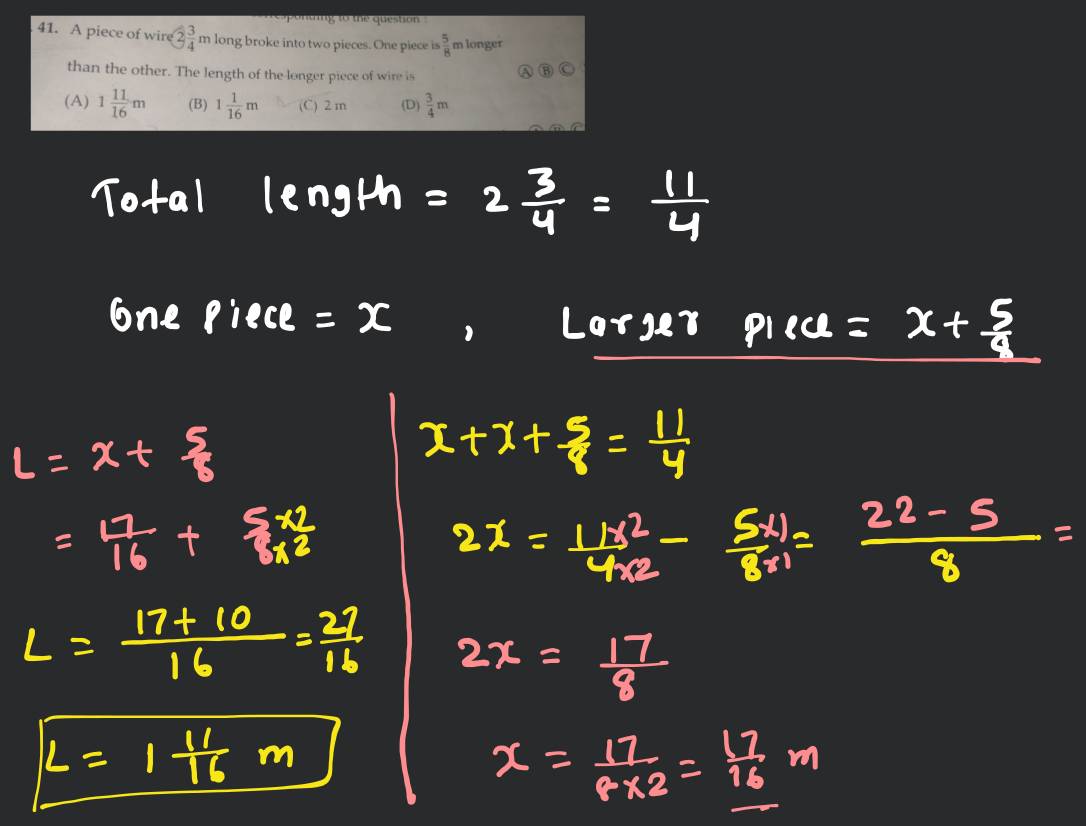 corresponding to the question :
41. A piece of wire 2 3/4 m long broke into two pieces. One piece is 5/8 m longer
than the other. The length of the longer piece of wire is
Ⓐ Ⓑ Ⓒ
(A) 1 11/16 m (B) 1 1/16 m (C) 2 m (D) 3/4 m
Total length = 2 3/4 = 11/4
One Piece = x , Larger piece = x + 5/8
L = x + 5/8
= 17/16 + 5×2/8×2
L = 17+10/16 = 27/16
L = 1 11/16 m
x + x + 5/8 = 11/4
2x = 11×2/4×2 - 5×1/8×1 = 22-5/8 =
2x = 17/8
x = 17/8×2 = 17/16 m